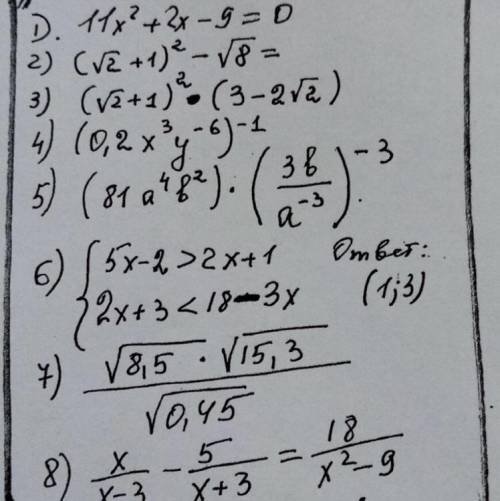 1). 11x² + 2x - 9 = 0
2) (√2 + 1)² - √8 =
3) (√2 + 1)² • (3 - 2√2)
4) (0,2 x³ y⁻⁶)⁻¹
5) (81 a⁴ в²) · (3в / a⁻³)⁻³
6) { 5x - 2 > 2x + 1 Ответ:
2x + 3 < 18 - 3x (1; 3)
7) √8,5 · √15,3 / √0,45
8) x / x-3 - 5 / x+3 = 18 / x² - 9